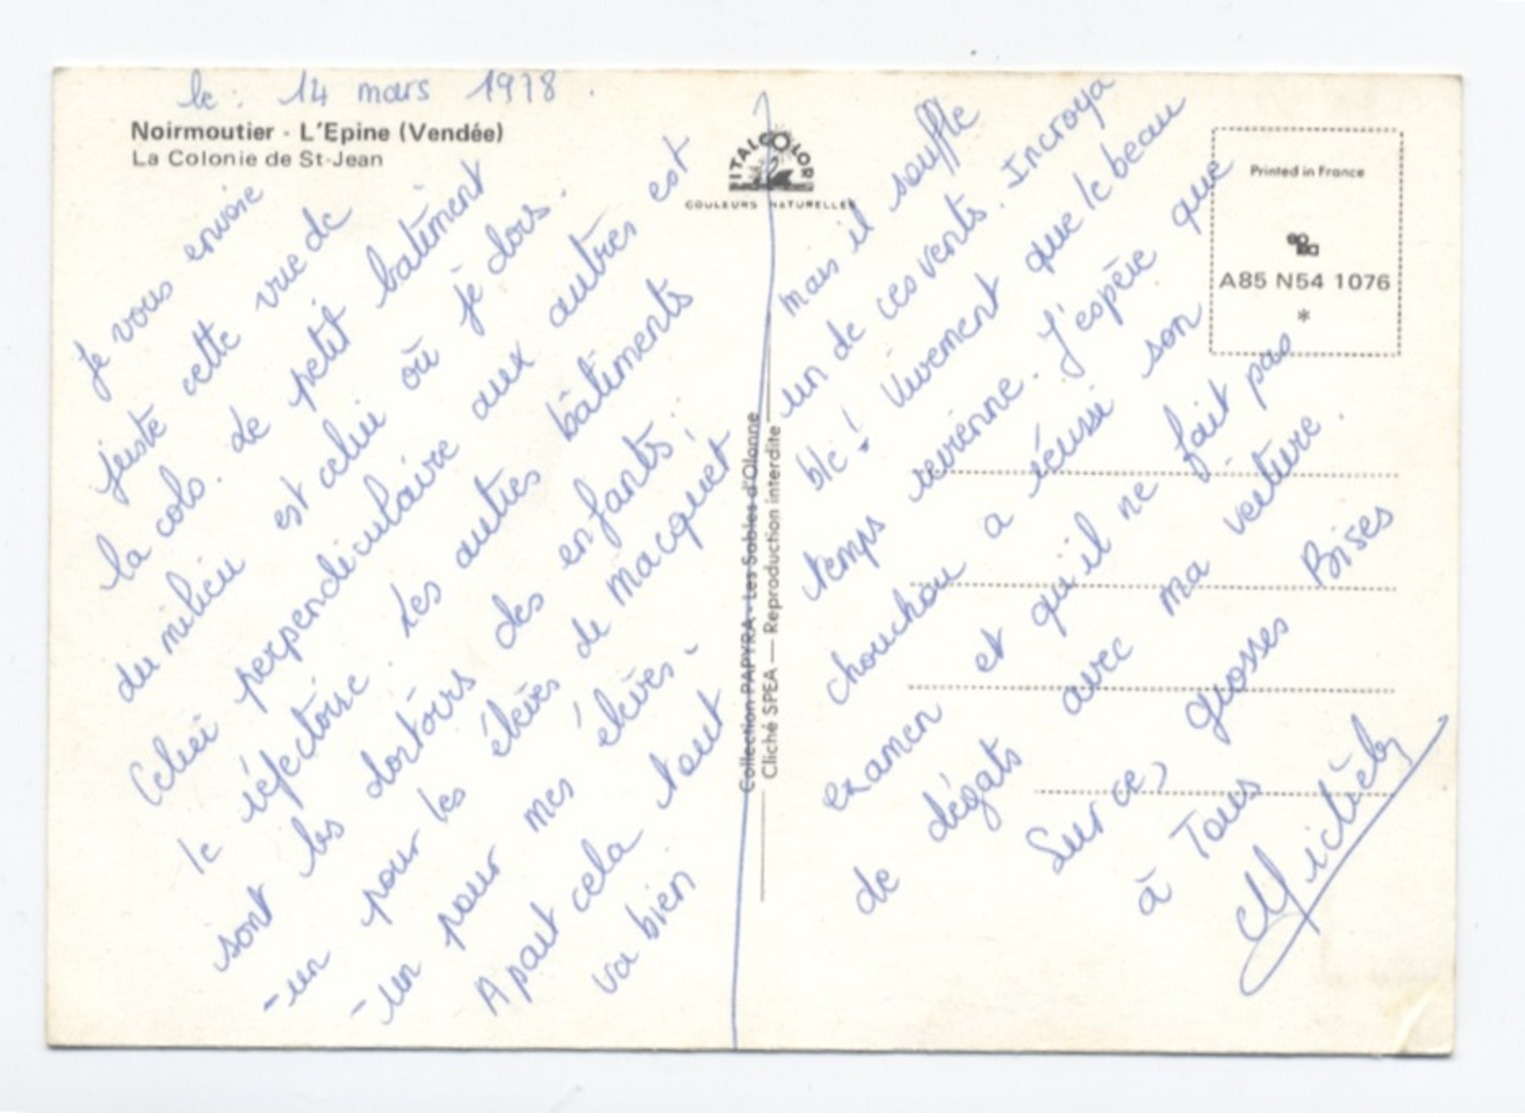 le : 14 mars 1978.
Noirmoutier - L'Epine (Vendée)
La Colonie de St-Jean
Je vous envoie
juste cette vue de
la colo. de petit bâtiment
du milieu est celui où je dors.
Celui perpendiculaire aux autres est
le réfectoire. Les autres bâtiments
sont les dortoirs des enfants :
- un pour les élèves de Macquet
- un pour mes élèves -
A part cela tout
va bien
ITALCOLOR
COULEURS NATURELLES
Collection PAPYRA - Les Sables d'Olonne
Cliché SPEA — Reproduction interdite
mais il souffle
un de ces vents. Incroya
ble ! Vivement que le beau
temps revienne. J'espère que
chouchou a réussi son
examen et qu'il ne fait pas
de dégats avec ma voiture.
Sur ce, grosses Bises
à Tous
Michèle
Printed in France
A85 N54 1076
*